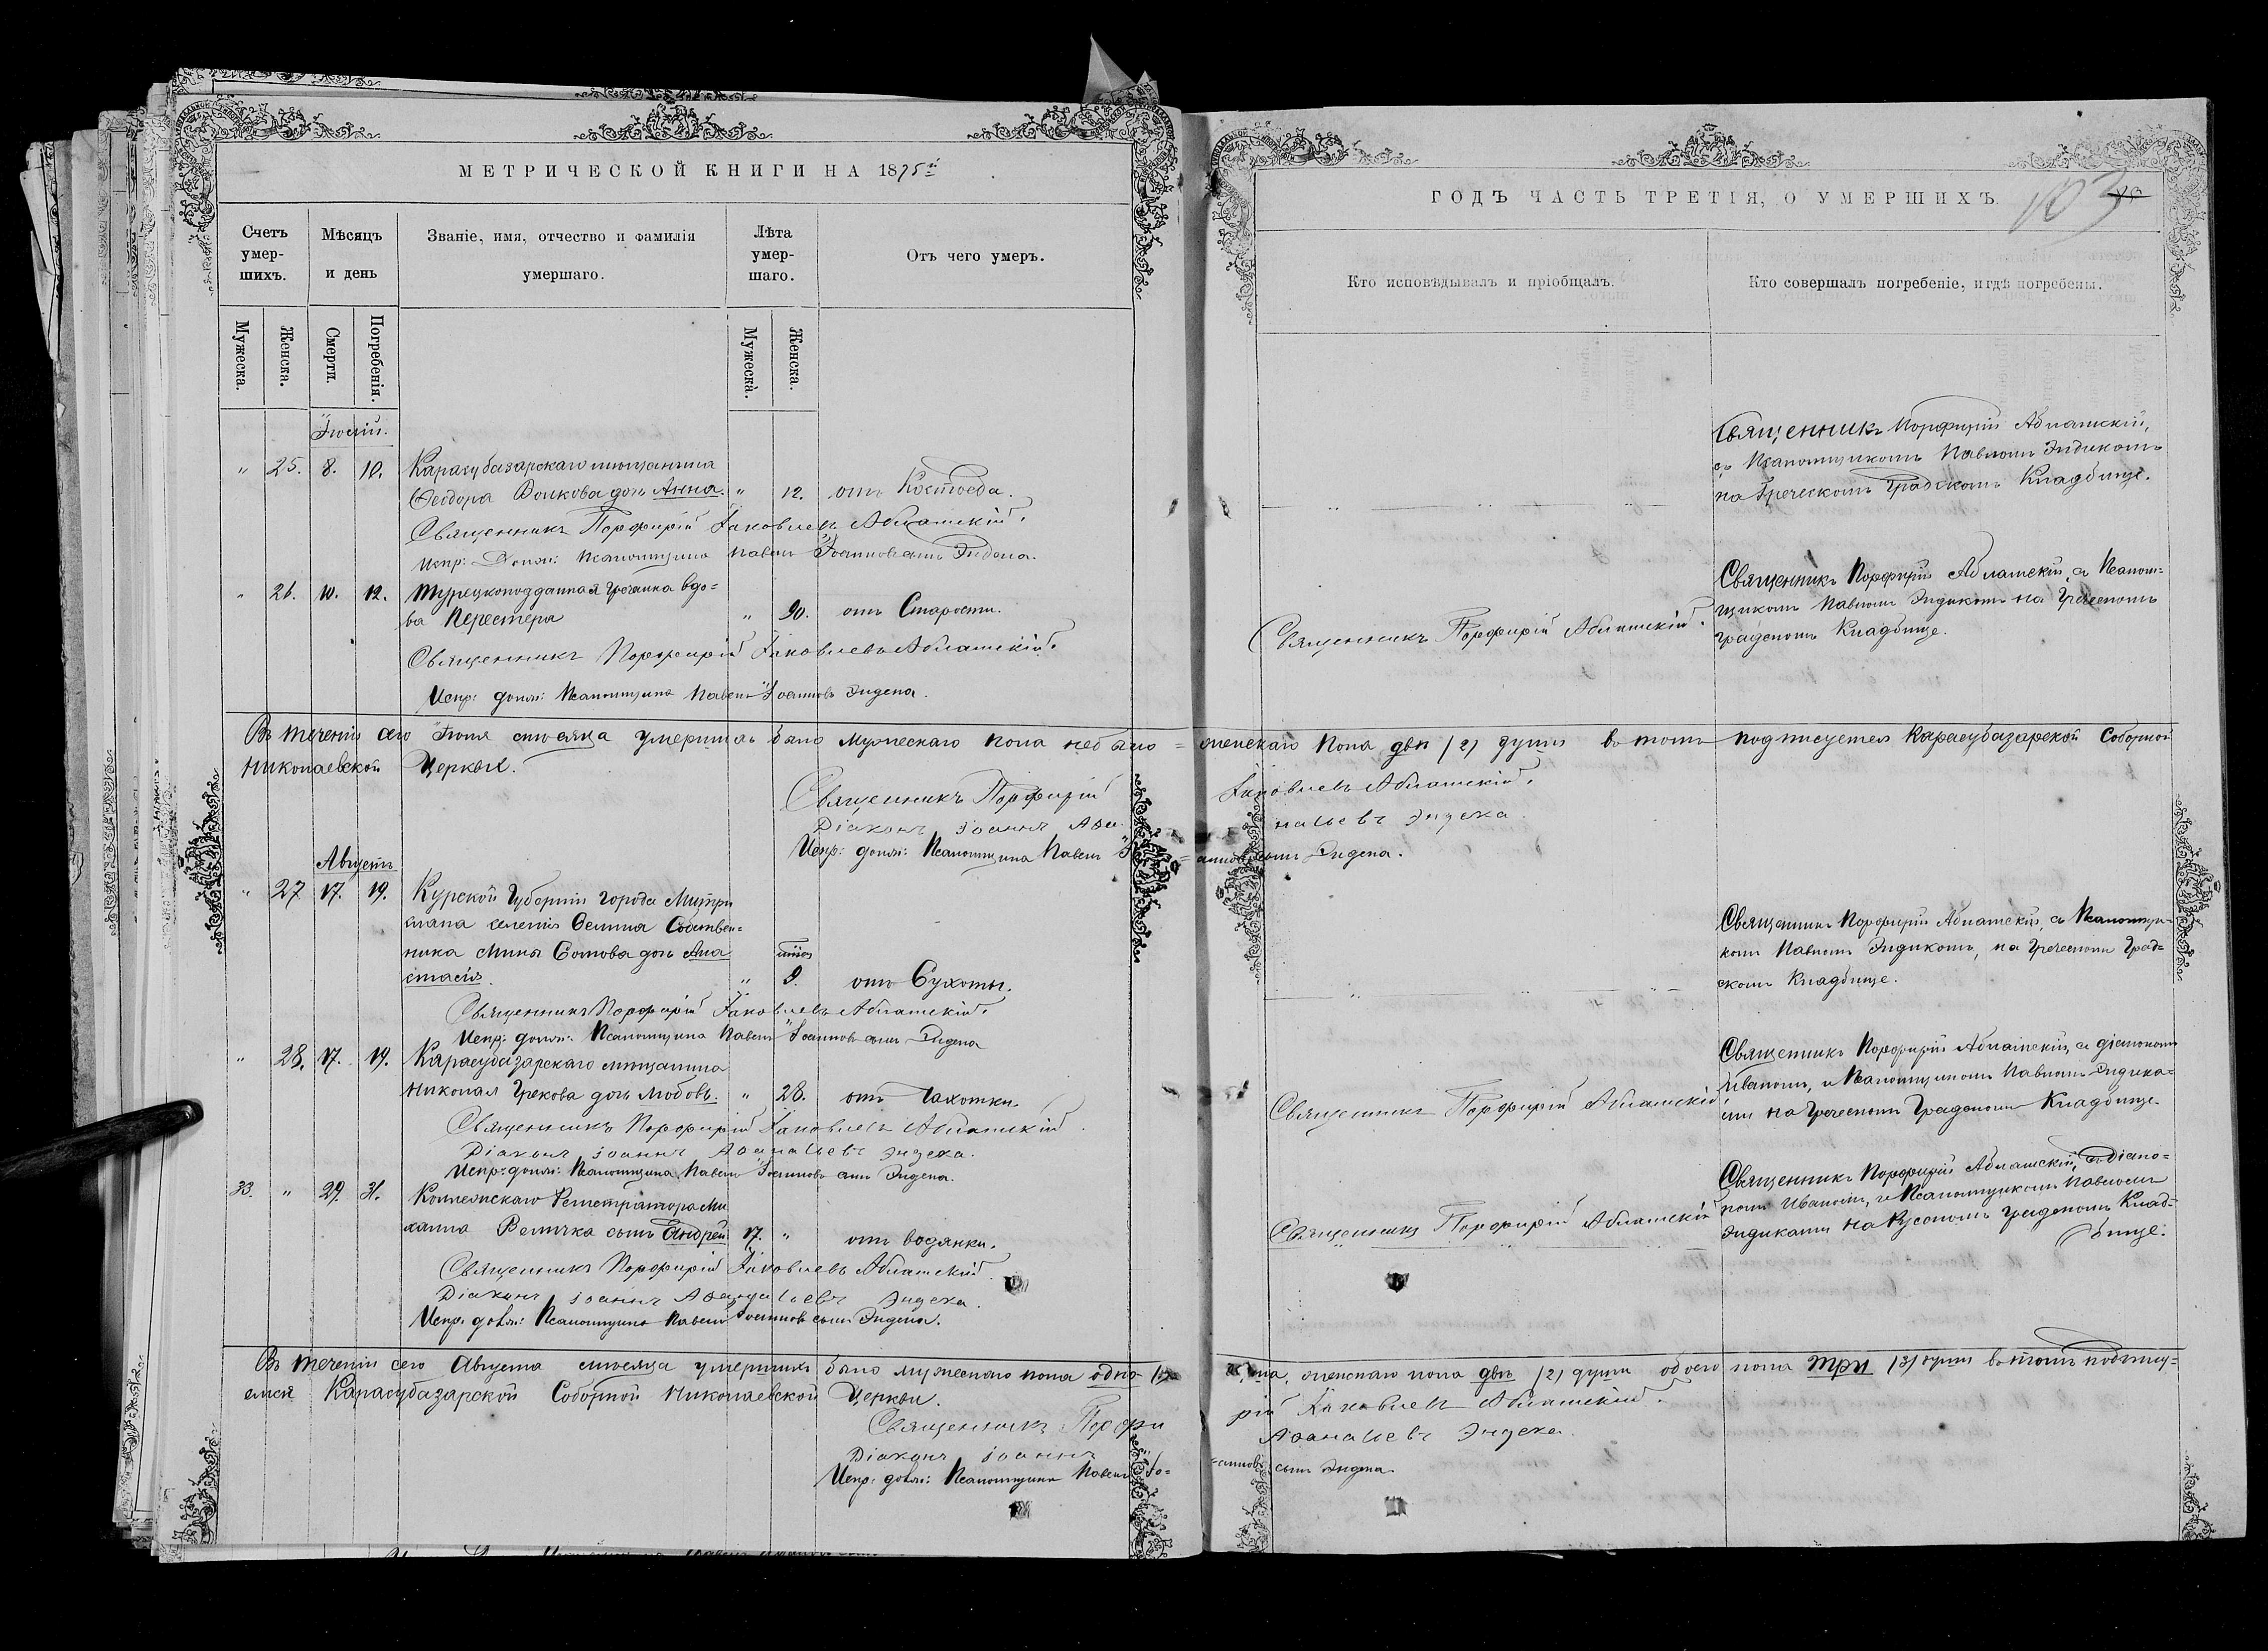 МЕТРИЧЕСКОЙ КНИГИ НА 1875й
Счетъ умер-шихъ.
Мѣсяцъ и день
Званіе, имя, отчество и фамилія умершаго.
Лѣта умер-шаго.
Отъ чего умеръ.
Мужеска.
Женска.
Смерти.
Погребенія.
Мужеска.
Женска.
Іюлій.
" 25. 8. 10. Карасубазарскаго мѣщанина
Ѳеодора Волкова дочь Анна. " 12. отъ Костоеда.
Священникъ Порфирій Іаковлевъ Аблашскій.
Испр: Долж: Псаломщика Павелъ Іоанновъ сынъ Эндека.
" 26. 10. 12. Турецкоподданная Гречанка вдо=
ва Перестера " 90. отъ Старости.
Священникъ Порфирій Іаковлевъ Аблашскій.
Испр: долж: Псаломщика Павелъ Іоанновъ Эндека.
Въ теченіи сего Іюля мѣсяца умершихъ было мужескаго пола небыло =
Николаевской Церкви.
Священникъ Порфирій
Діаконъ Іоаннъ Аѳа
Испр: долж: Псаломщика Павелъ
Августъ
" 27 17. 19. Курской Губерніи города
селенія Собствен=
ника дочь Ана
стасія. " 9. отъ Сухоты.
Священникъ Порфирій Іаковлевъ Аблашскій.
Испр: долж: Псаломщика Павелъ Іоанновъ сынъ Эндека
" 28. 17. 19. Карасубазарскаго мѣщанина
Николая Грекова дочь Любовь. " 28. отъ Чахотки.
Священникъ Порфирій Іаковлевъ Аблашскій.
Діаконъ Іоаннъ Аѳанасьевъ Эндека.
Испр: долж: Псаломщика Павелъ Іоанновъ сынъ Эндека.
33. " 29. 31. Коллежскаго Регистратора Ми
хаила сынъ Андрей 17. " отъ водянки.
Священникъ Порфирій Іаковлевъ Аблашскій.
Діаконъ Іоаннъ Аѳанасьевъ Эндека.
Испр. долж: Псаломщика Павелъ Іоанновъ сынъ Эндека.
Въ теченіи сего Августа мѣсяца умершихъ было мужескаго пола одна
емся Карасубазарской Соборной Николаевской Церкви.
Священникъ Порфи
Діаконъ Іоаннъ
Испр: долж: Псаломщика Павелъ Іо=
ГОДЪ ЧАСТЬ ТРЕТІЯ, О УМЕРШИХЪ.
103
Кто исповѣдывалъ и пріобщалъ.
Кто совершалъ погребеніе, и гдѣ погребены.
Священникъ Порфирій Аблашскій,
съ Псаломщикомъ Павломъ Эндикомъ
на Греческомъ Градскомъ Кладбище.
Священникъ Порфирій Аблашскій.
Священникъ Порфирій Аблашскій, съ Псалом=
щикомъ Павломъ Эндикомъ на Греческомъ
градскомъ Кладбище.
женскаго пола двѣ (2) души въ томъ подписуемся Карасубазарской Соборной
Іаковлевъ Аблашскій.
насьевъ Эндека
=анновъ сынъ Эндека.
Священникъ Порфирій Аблашскій, съ Псаломщи=
комъ Павломъ Эндикомъ, на Греческомъ Град=
скомъ Кладбище.
Священникъ Порфирій Аблашскій
Священникъ Порфирій Аблашскій, съ діакономъ
Иваномъ, и Псаломщикомъ Павломъ Эндика=
ми на Греческомъ Градскомъ Кладбище.
Священникъ Порфирій Аблашскій
Священникъ Порфирій Аблашскій, съ Діако=
номъ Иваномъ, и Псаломщикомъ Павломъ
Эндиками на Русскомъ градскомъ Клад=
бище.
женскаго пола двѣ (2) души обоего пола три (3) души въ томъ подпису=
рій Іаковлевъ Аблашскій.
Аѳанасьевъ Эндека.
=анновъ сынъ Эндека.